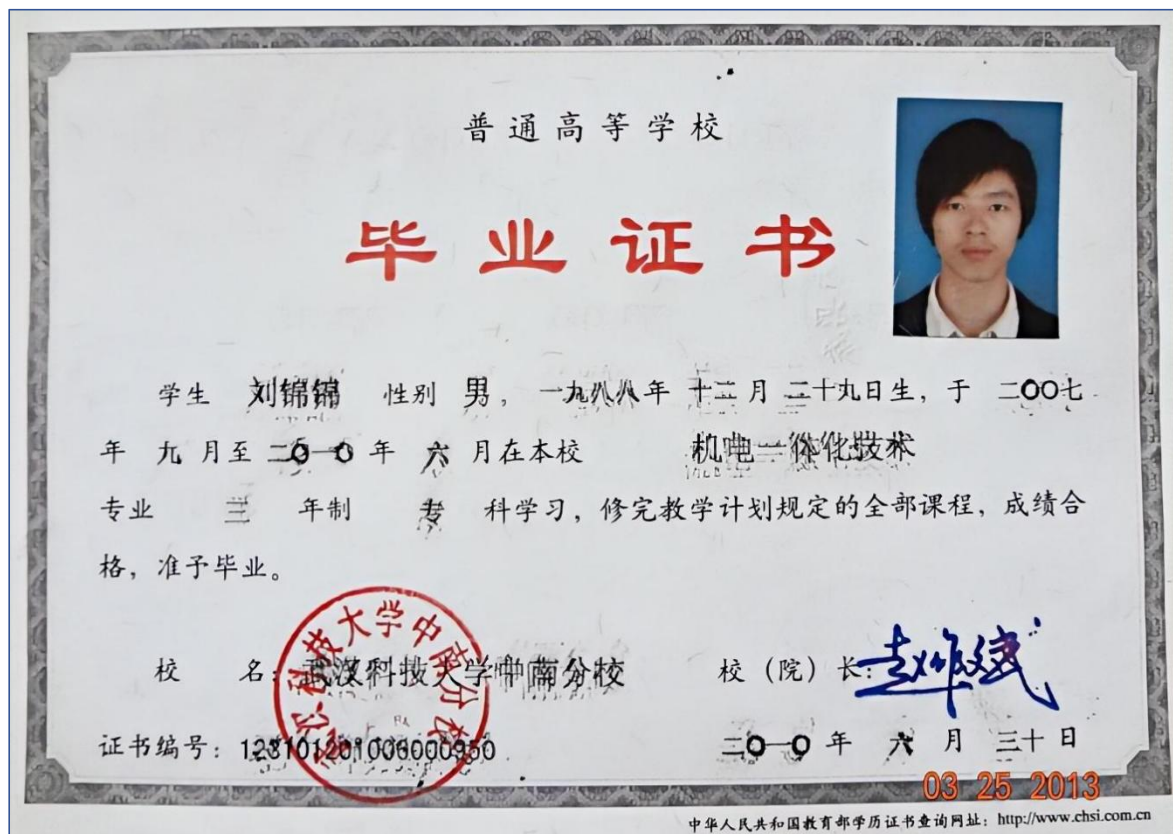 普通高等学校
毕业证书
学生 刘锦锦 性别 男，一九八八年 十二月 二十九日生，于 二〇〇七
年 九 月至 二〇一〇 年 六 月在本校 机电一体化技术
专业 三 年制 专 科学习，修完教学计划规定的全部课程，成绩合
格，准予毕业。
武汉科技大学中南分校
校 名：武汉科技大学中南分校 校（院）长：
证书编号：123101201006000950 二〇一〇 年 六 月 三十日
03 25 2013
中华人民共和国教育部学历证书查询网址：http://www.chsi.com.cn